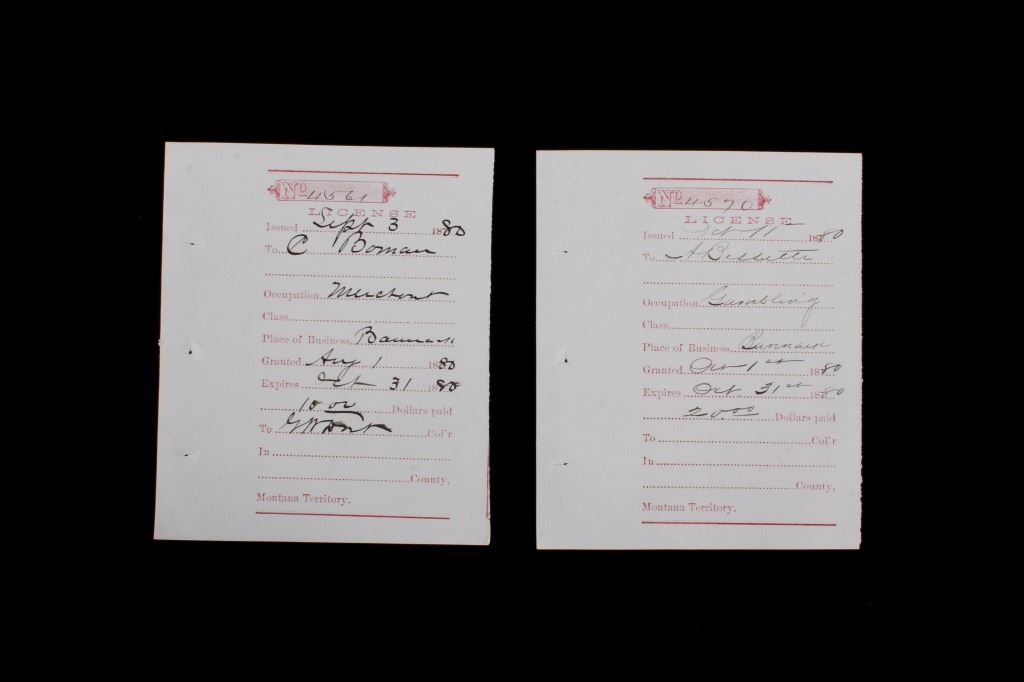 No 4561
LICENSE
Issued Sept 3 1880
To C Boman
Occupation Merchant
Class
Place of Business Bannack
Granted Aug 1 1880
Expires Oct 31 1880
10 00 Dollars paid
To Col'r
In
County,
Montana Territory.
No 4570
LICENSE
Issued Oct 11 1880
To A Bessette
Occupation Gambling
Class
Place of Business Bannack
Granted Oct 1st 1880
Expires Oct. 31st 1880
20.00 Dollars paid
To Col'r
In
County,
Montana Territory.